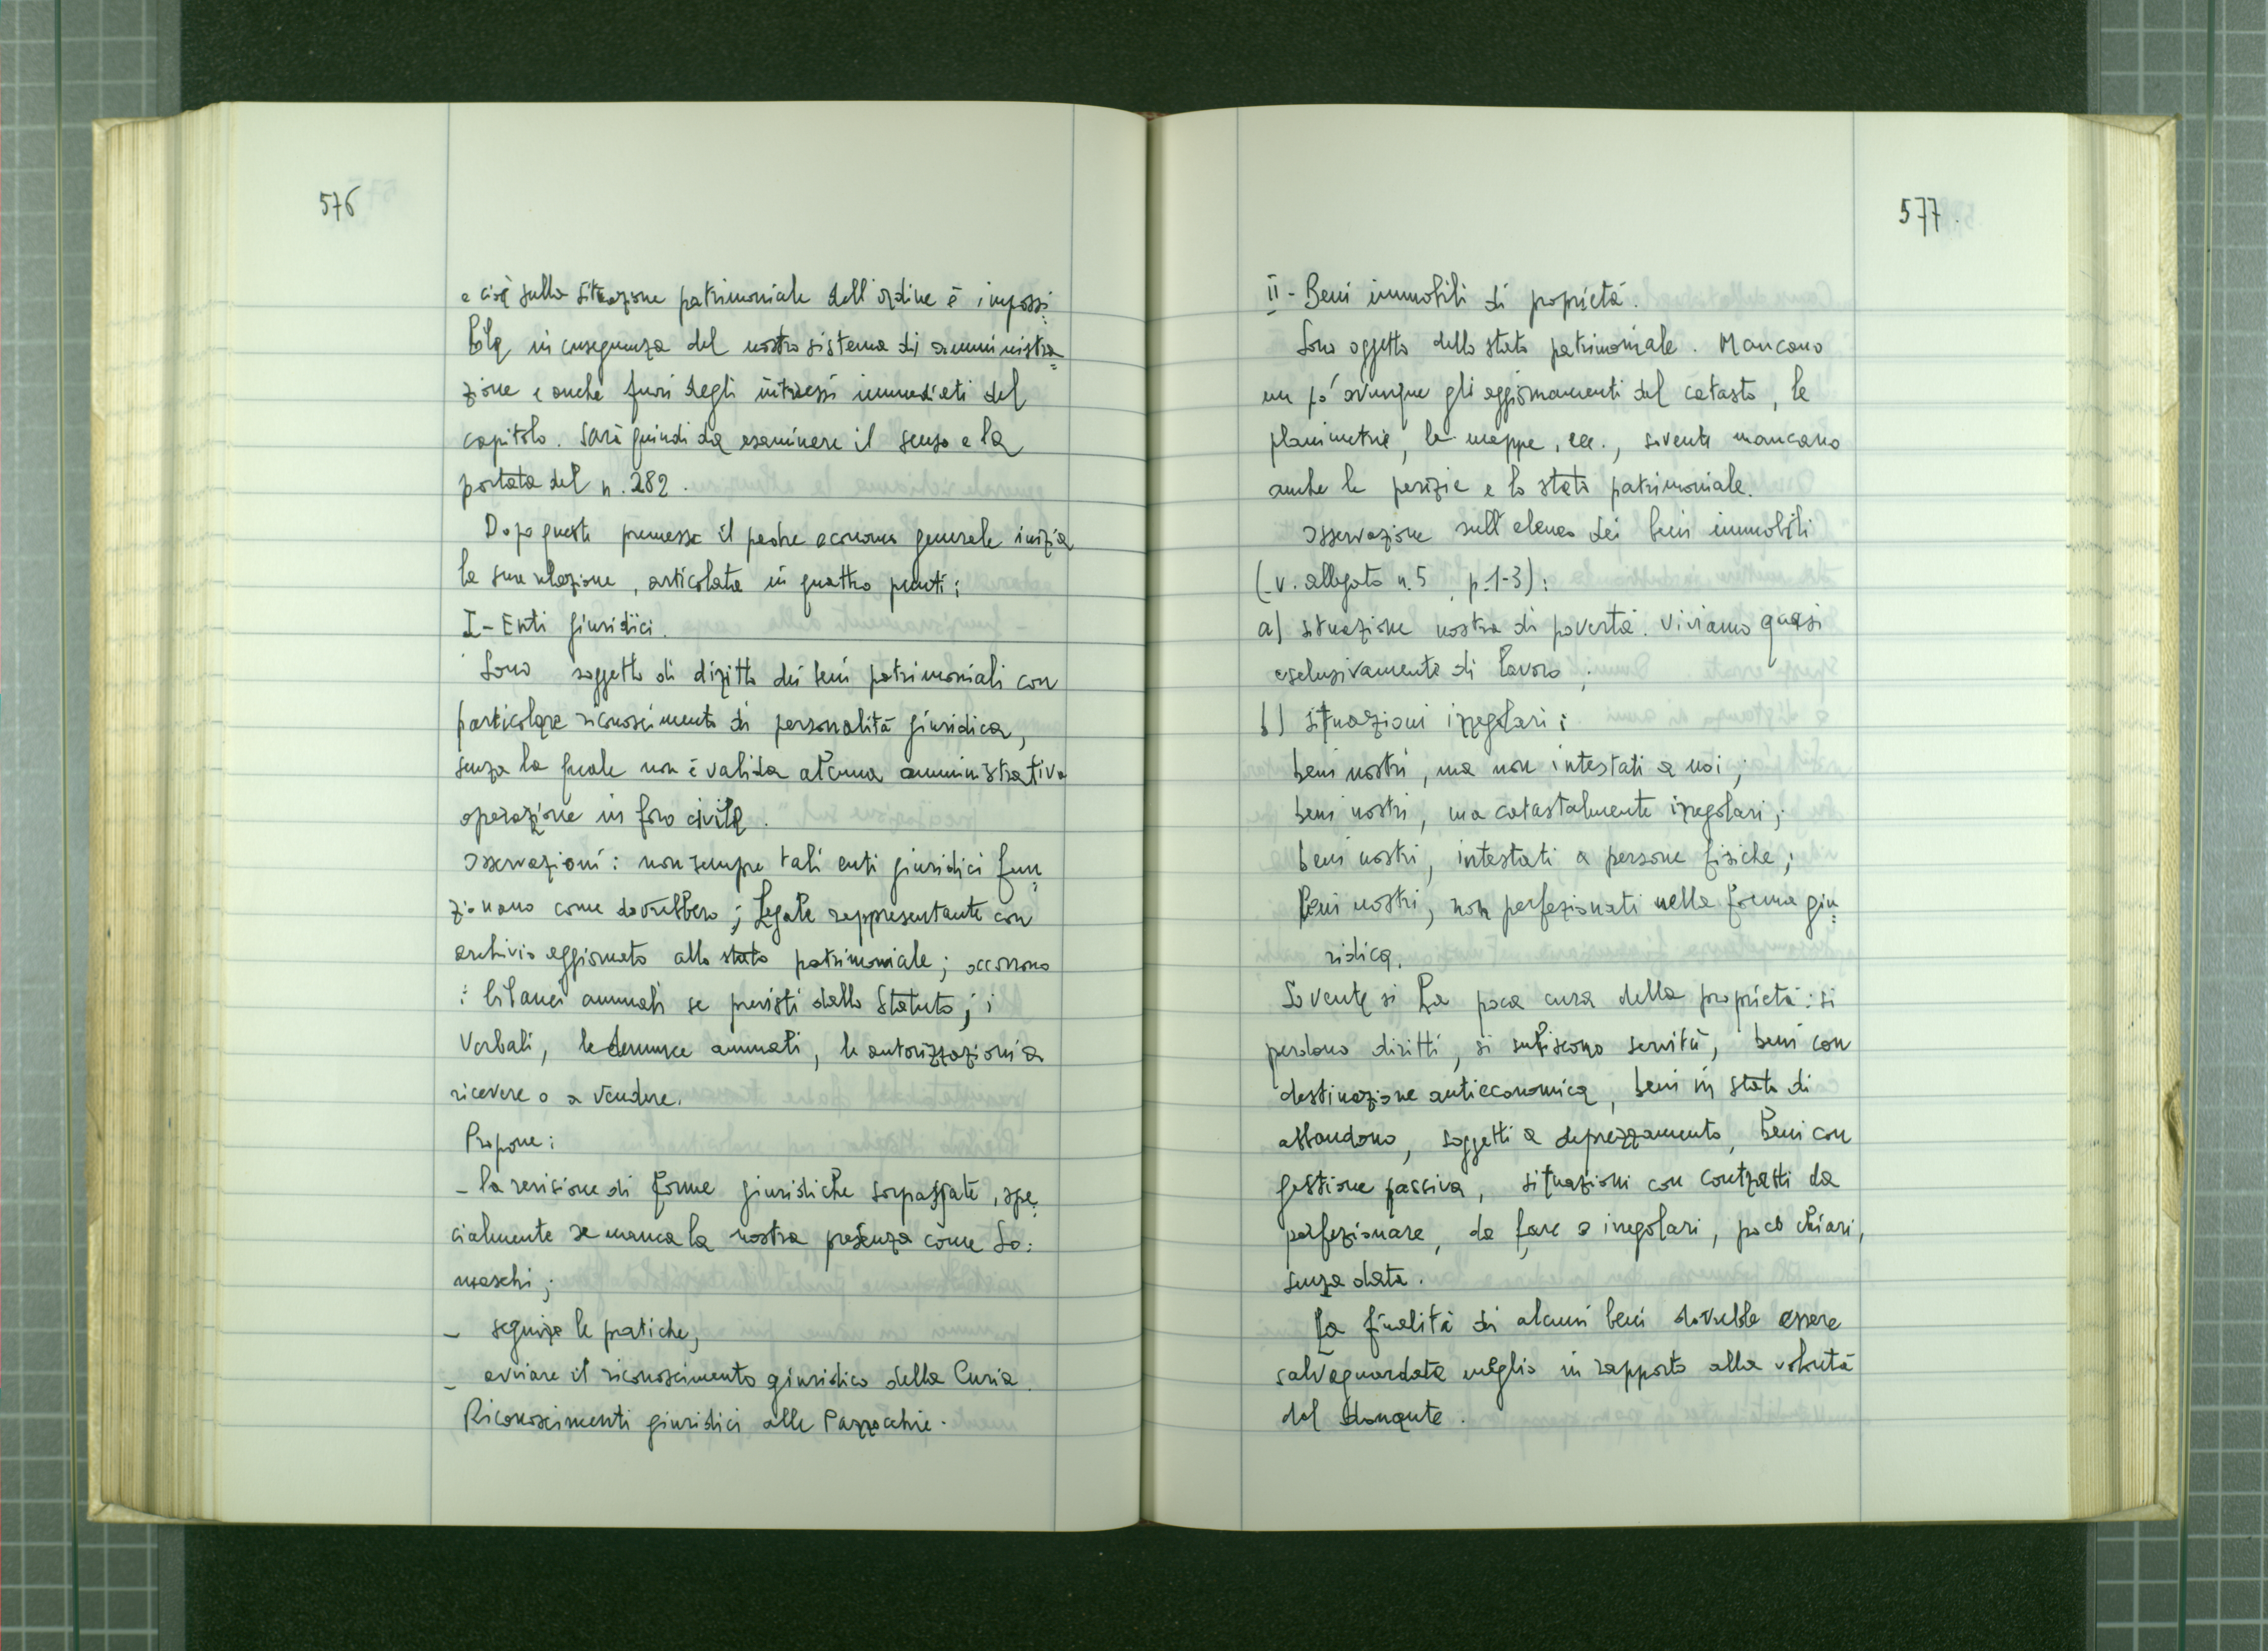 576
e cioè sulla situazione patrimoniale dell'ordine è impossi=
bile in conseguenza del nostro sistema di amministra=
zione e anche fuori degli interessi immediati del
capitolo. Sarà quindi da esaminare il senso e la
portata del n. 282.
Dopo queste premesse il padre economo generale inizia
la sua relazione, articolata in quattro punti:
I - Enti giuridici.
Sono soggetto di diritto dei beni patrimoniali con
particolare riconoscimento di personalità giuridica,
senza la quale non è valida alcuna amministrativa
operazione in foro civile.
Osservazioni: non sempre tali enti giuridici fun=
zionano come dovrebbero; Legale rappresentante con
archivio aggiornato allo stato patrimoniale; occorrono
i bilanci annuali se previsti dallo Statuto; i
verbali, le denunce annuali, le autorizzazioni a
ricevere o a vendere.
Propone:
- la revisione di forme giuridiche sorpassate, spe=
cialmente se manca la nostra presenza come So=
maschi;
- seguire le pratiche;
- avviare il riconoscimento giuridico della Curia.
Riconoscimenti giuridici alle Parrocchie.
577.
II - Beni immobili di proprietà.
Sono oggetto dello stato patrimoniale. Mancano
un po' ovunque gli aggiornamenti del catasto, le
planimetrie, le mappe, ecc., sovente mancano
anche le perizie e lo stato patrimoniale.
Osservazione sull'elenco dei beni immobili
(v. allegato n. 5, p. 1-3):
a) situazione nostra di povertà. Viviamo quasi
esclusivamente di lavoro;
b) situazioni irregolari:
beni nostri, ma non intestati a noi;
beni nostri, ma catastalmente irregolari;
beni nostri, intestati a persone fisiche;
beni nostri, non perfezionati nella forma giu=
ridica.
Sovente si ha poca cura della proprietà: si
perdono diritti, si subiscono servitù, beni con
destinazione antieconomica, beni in stato di
abbandono, soggetti a deprezzamento, beni con
gestione passiva, situazioni con contratti da
perfezionare, da fare o irregolari, poco chiari,
senza data.
La finalità di alcuni beni dovrebbe essere
salvaguardata meglio in rapporto alla volontà
del donante.